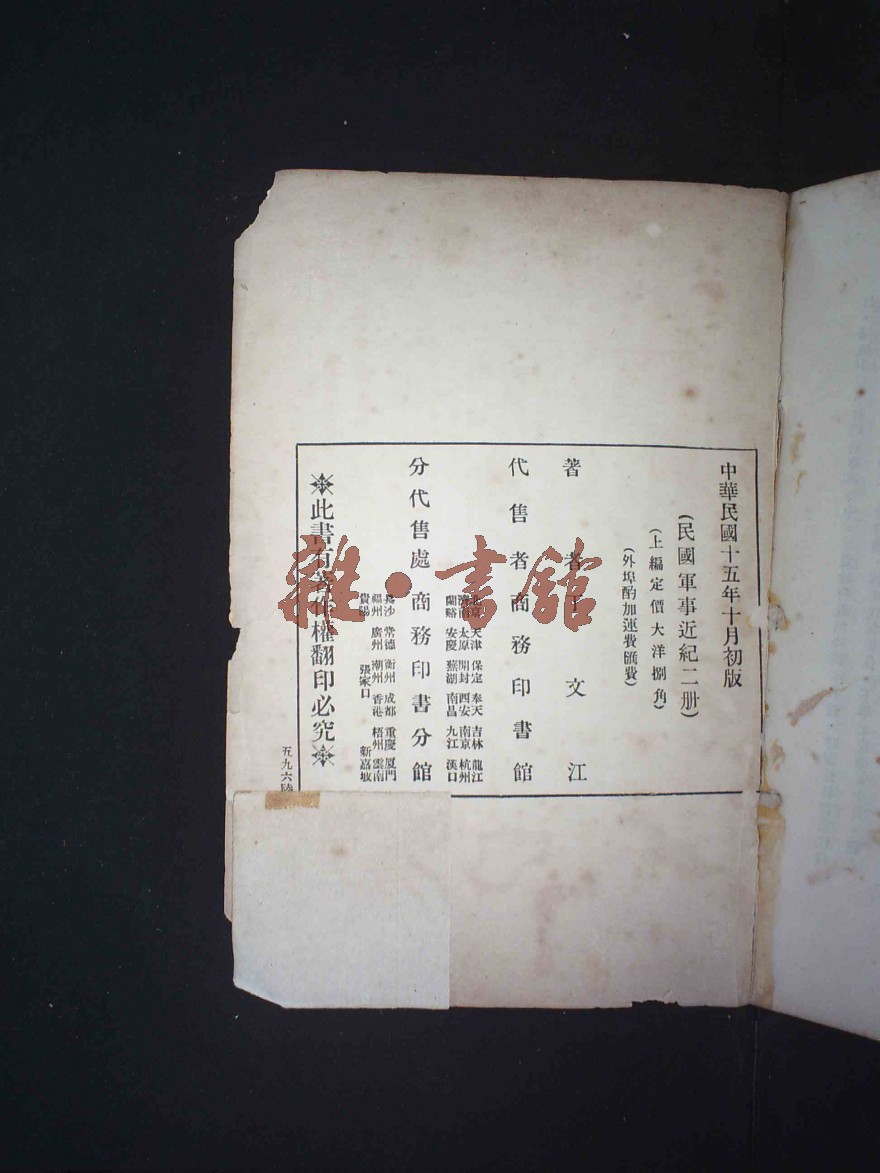 中華民國十五年十月初版
(民國軍事近紀二册)
(上編定價大洋捌角)
(外埠酌加運費匯費)
著者丁文江
代售者商務印書館
北京 天津 保定 奉天 吉林 龍江
濟南 太原 開封 西安 南京 杭州
蘭谿 安慶 蕪湖 南昌 九江 漢口
分代售處商務印書分館
長沙 常德 衡州 成都 重慶 厦門
福州 廣州 潮州 香港 梧州 雲南
貴陽 張家口 新嘉坡
此書有著作權翻印必究
五九六陸
雜·書館